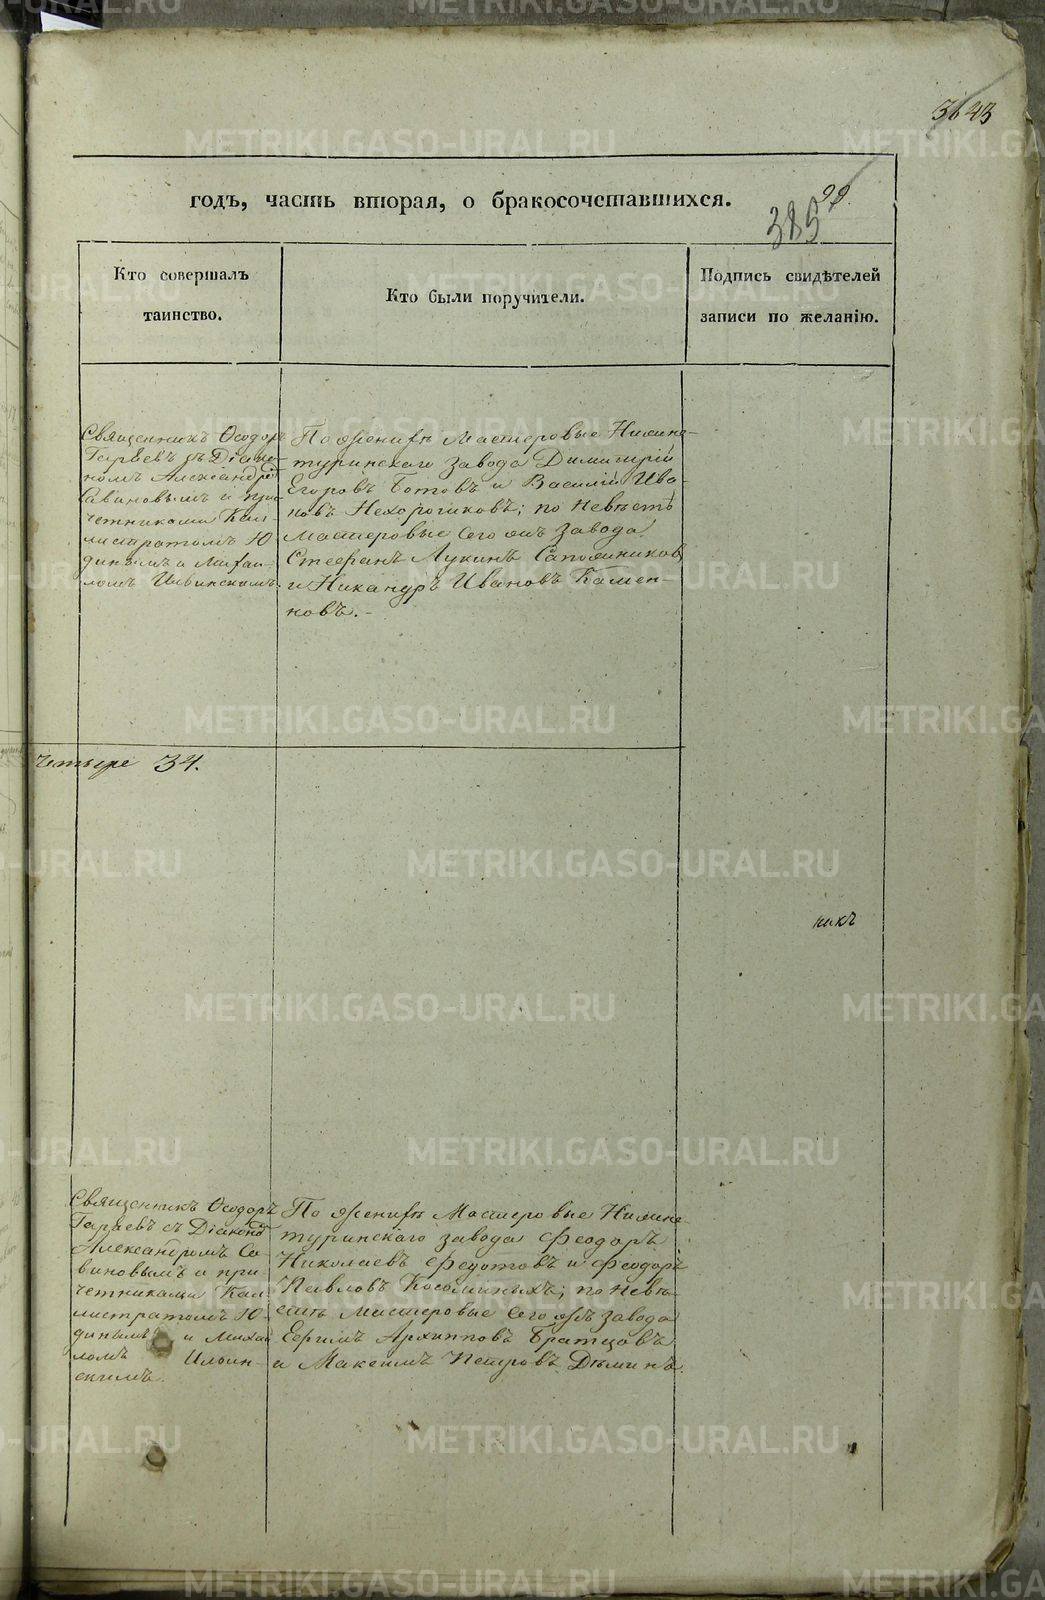 3643
годъ, часть вторая, о бракосочетавшихся.
99
385
Кто совершалъ
таинство.
Кто были поручители.
Подпись свидѣтелей
записи по желанію.
Священникъ Ѳеодоръ
Гаряевъ съ Діако-
номъ Александромъ
Савиновымъ и при-
четниками Кал-
листратомъ Ю-
динымъ и Михаи-
ломъ Ильинскимъ.
По женихѣ Мастеровые Нижне-
туринскаго завода Димитрій
Егоровъ Ботовъ и Василій Ива-
новъ Нехорошковъ; по невѣстѣ
Мастеровые сего жъ завода
Стефанъ Лукинъ Сапожниковъ
и Никандръ Ивановъ Камен-
ковъ.-
четыре 34.
никъ
Священникъ Ѳеодоръ
Гаряевъ съ Діакономъ
Александромъ Са-
виновымъ и при-
четниками Кал-
листратомъ Ю-
динымъ и Михаи-
ломъ Ильин-
скимъ.
По женихѣ Мастеровые Нижне-
туринскаго завода Феодоръ
Николаевъ Федотовъ и Феодоръ
Павловъ Косолиныхъ; по невѣ-
стѣ Мастеровые сего жъ завода
Ефимъ Архипповъ Братцовъ
и Максимъ Петровъ Дѣминъ.
METRIKI.GASO-URAL.RU